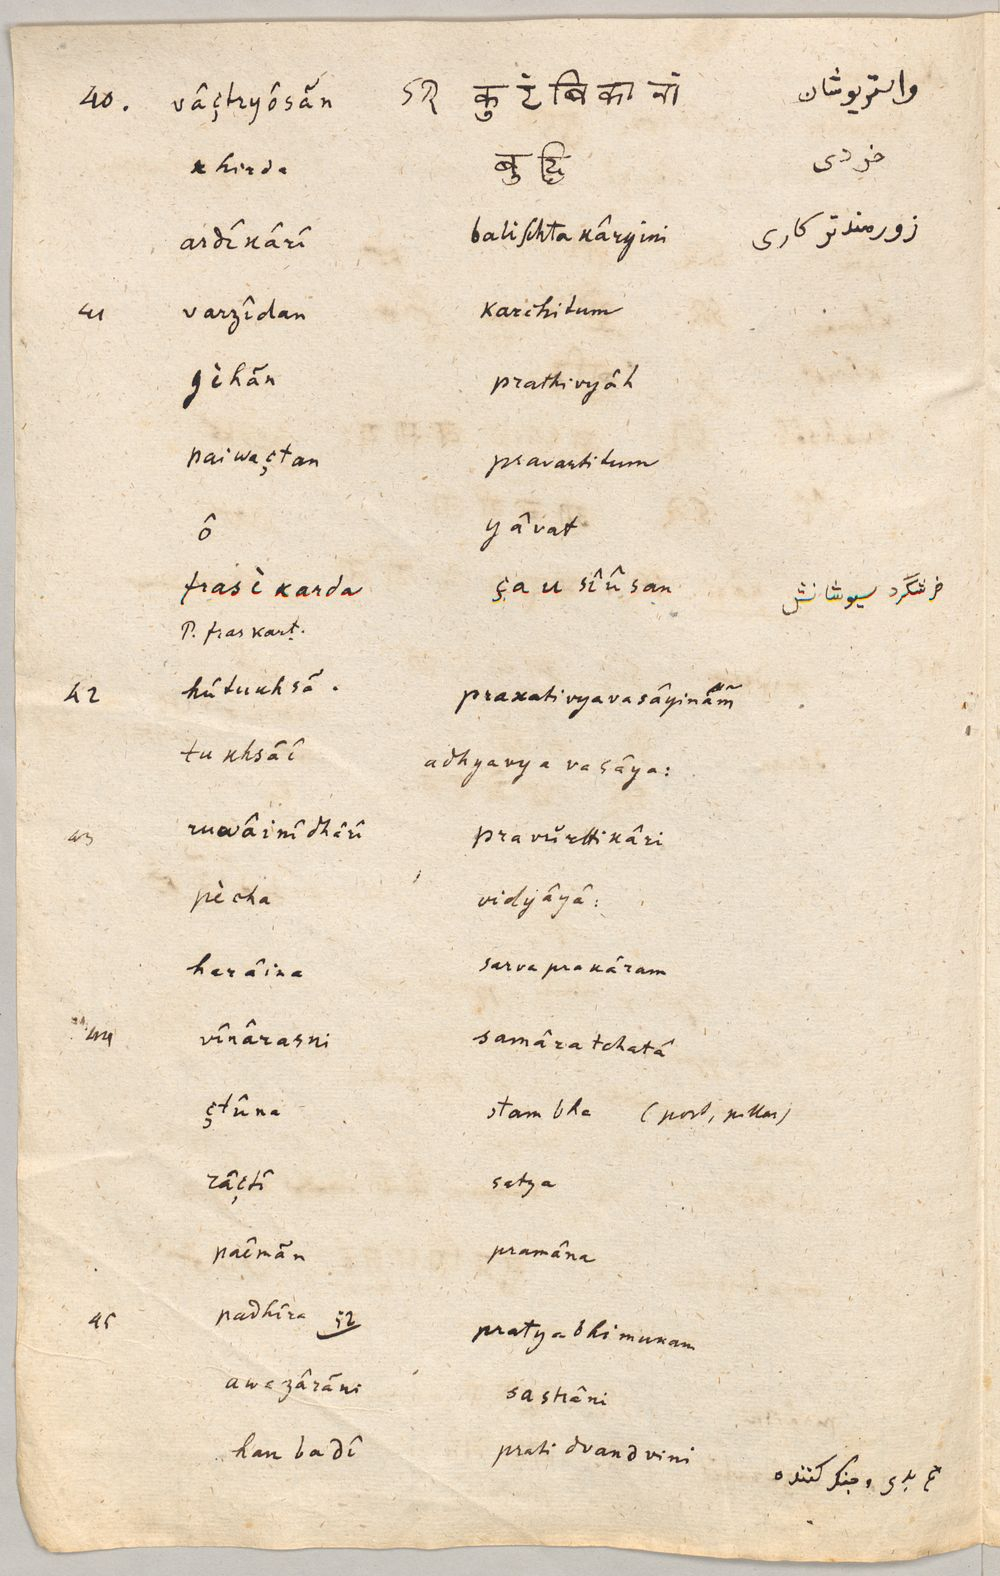 40. vâçtryôsãn SR कुटंबिकानां واستریوشان
khirda बुद्धि خردی
ardîkârî balischtakâryini زورمندتر کاری
41 varzîdan karchitum
gèhãn prathivyâh
paiwaçtan pravartitum
ô yâvat
frasèkarda çausîûsan فرشگرد سیوشانش
P. fraskart.
42 hûtukhsã. prakativyavasâyinâm̃
tukhsãî adhyavyavasâya:
43 ruwâinîdhârî pravŭrttikâri
pècha vidyâyâ:
harâina sarvaprakâram
44 vînârasni samâratchatâ
çtûna stambha (post, pillar)
râçtî satya
paêmãn pramâna
45 padhîra 52 pratyabhimukam
awazârãni sastrâni
hanbadî pratidvandvini بدی و جنگ کننده